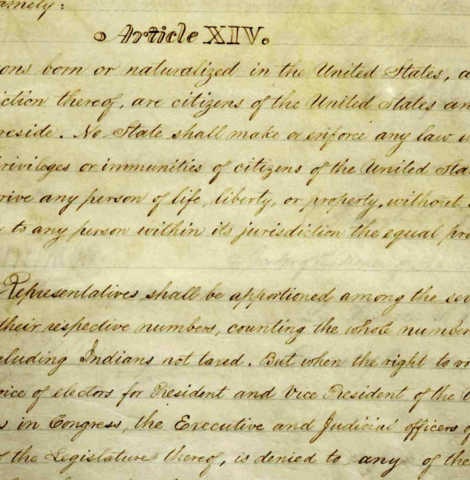 amely:
Article XIV.
ons born or naturalized in the United States, a
iction thereof, are citizens of the United States an
reside. No State shall make or enforce any law w
rivileges or immunities of citizens of the United Sta
rive any person of life, liberty, or property, without
to any person within its jurisdiction the equal pro
Representatives shall be apportioned among the se
their respective numbers, counting the whole number
cluding Indians not taxed. But when the right to vo
oice of electors for President and Vice President of the U
s in Congress, the Executive and Judicial officers o
f the Legislature thereof, is denied to any of the